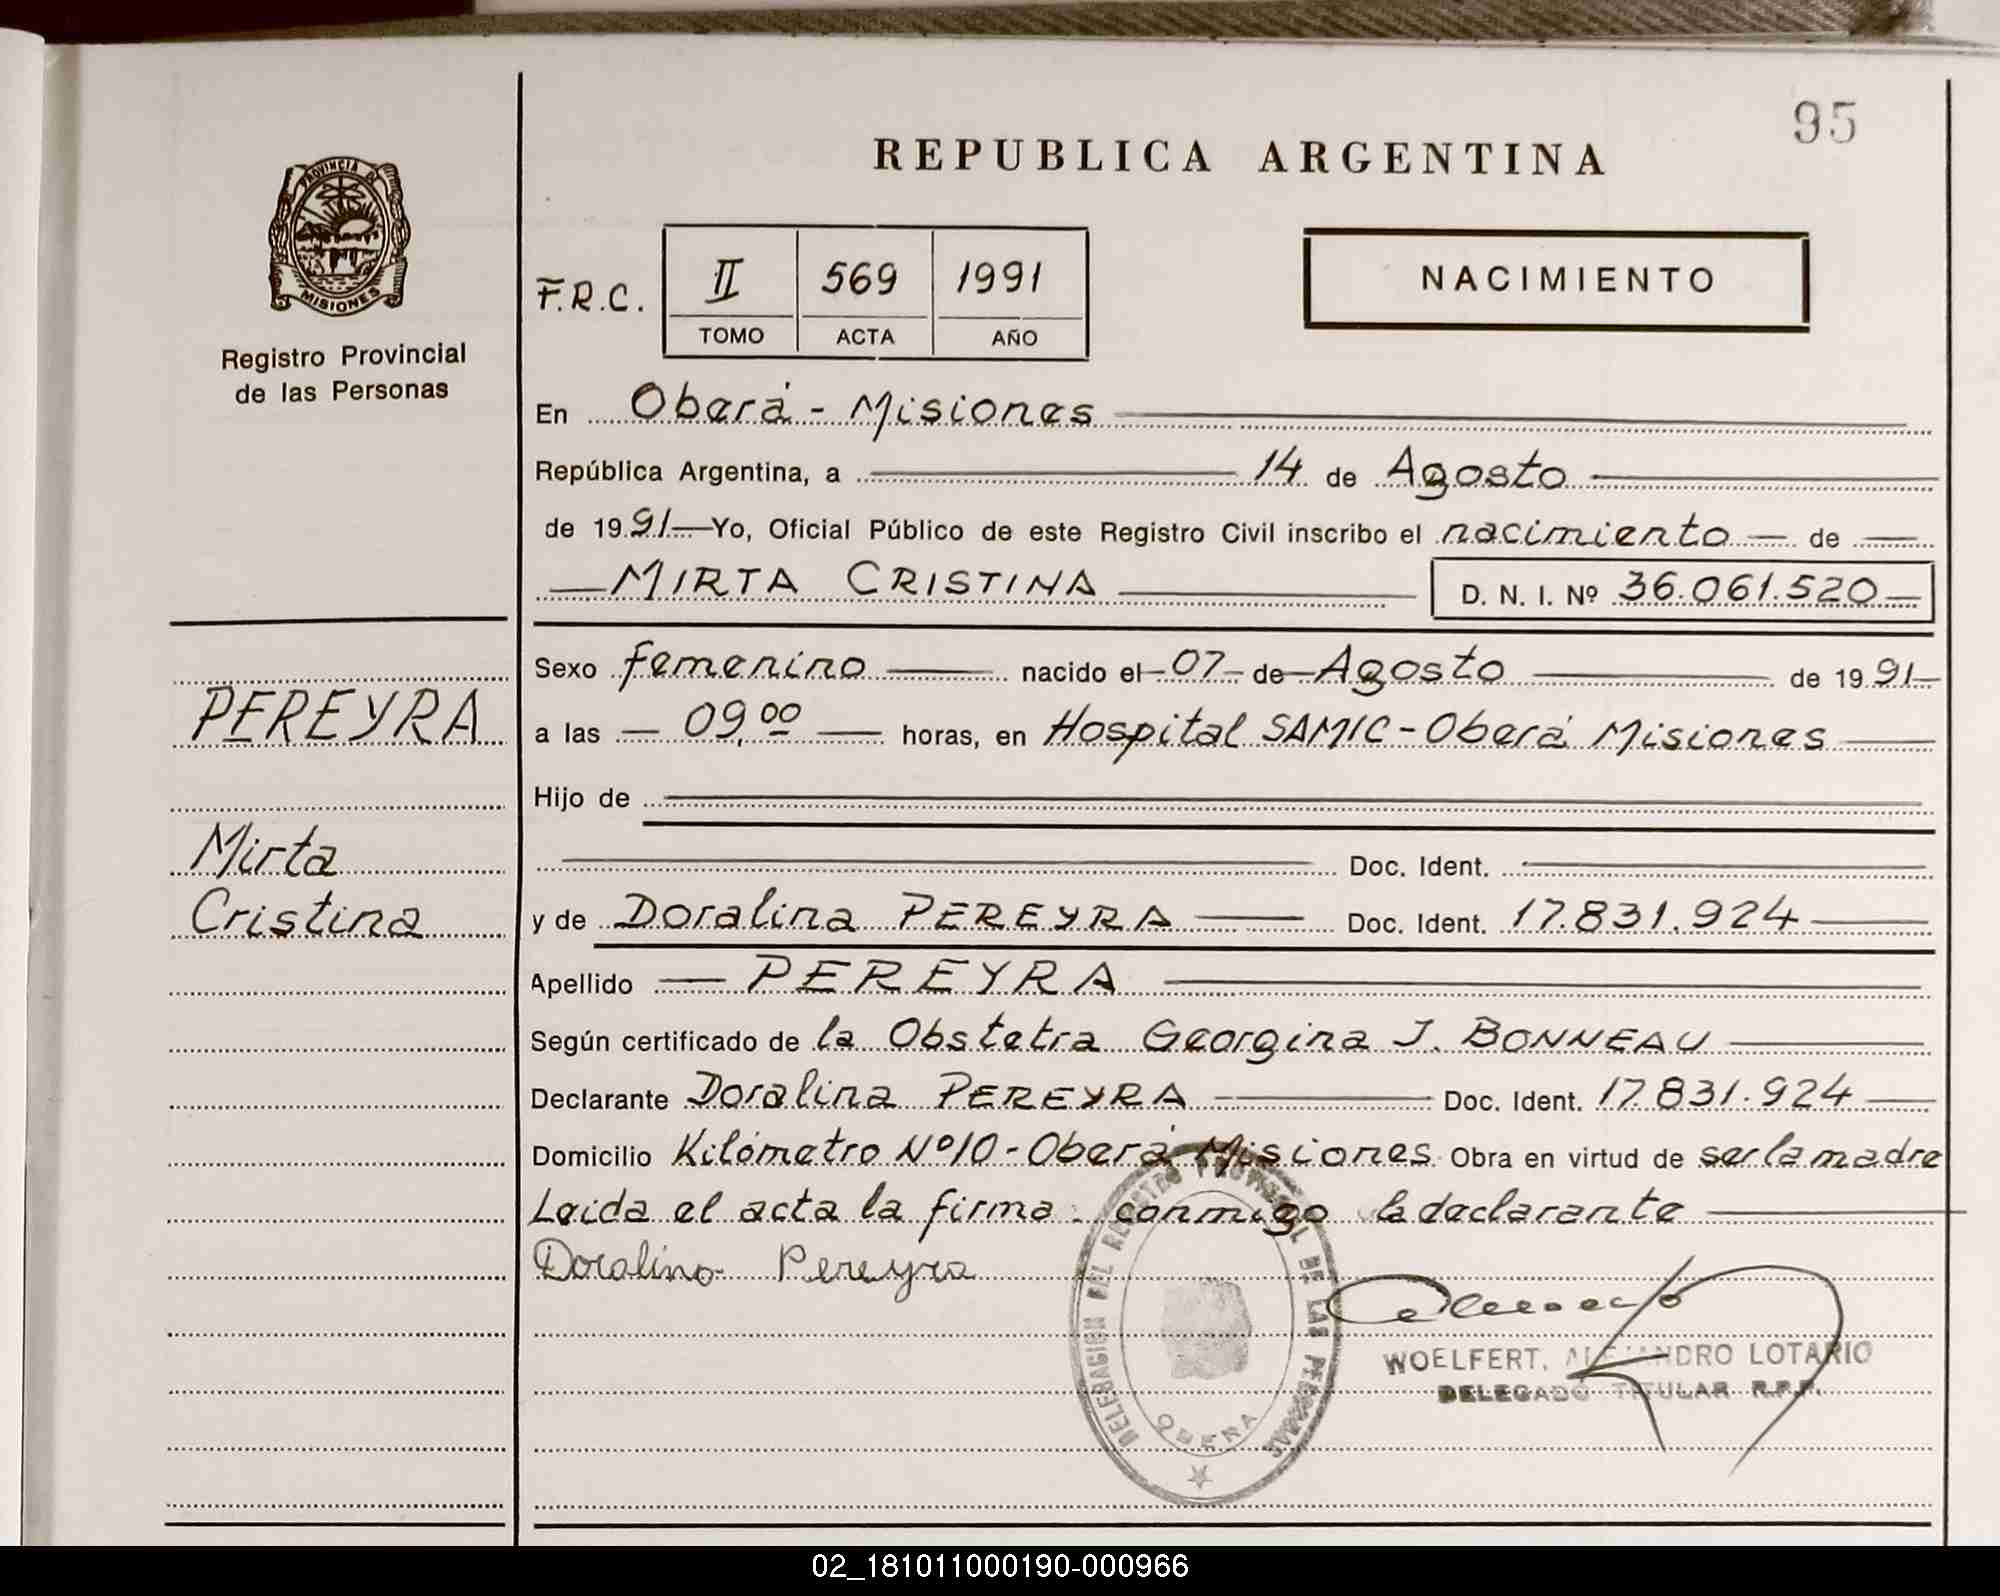 95
REPUBLICA ARGENTINA
PROVINCIA DE
MISIONES
Registro Provincial
de las Personas
F.R.C. II 569 1991
TOMO ACTA AÑO
NACIMIENTO
En Oberá - Misiones
República Argentina, a 14 de Agosto
de 1991 Yo, Oficial Público de este Registro Civil inscribo el nacimiento de
MIRTA CRISTINA D. N. I. Nº 36.061.520
PEREYRA
Mirta
Cristina
Sexo femenino nacido el 07 de Agosto de 1991
a las 09,00 horas, en Hospital SAMIC - Oberá Misiones
Hijo de
Doc. Ident.
y de Doralina PEREYRA Doc. Ident. 17.831.924
Apellido PEREYRA
Según certificado de la Obstetra Georgina J. BONNEAU
Declarante Doralina PEREYRA Doc. Ident. 17.831.924
Domicilio Kilómetro Nº 10 - Oberá Misiones Obra en virtud de ser la madre
Leida el acta la firma conmigo la declarante
Doralina Pereyra
DELEGACION DEL REGISTRO PROVINCIAL DE LAS PERSONAS
OBERA
WOELFERT, ALEJANDRO LOTARIO
DELEGADO TITULAR R.P.P.
02_181011000190-000966